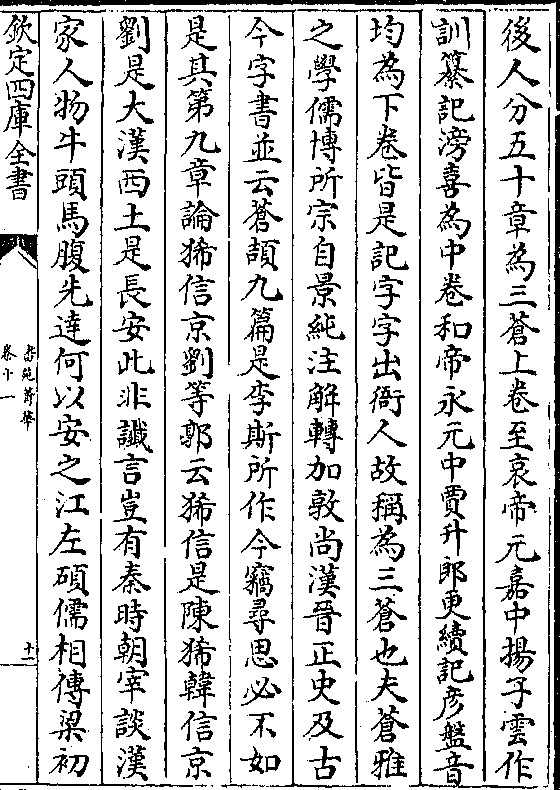 後人分五十章為三蒼上卷至哀帝元嘉中揚子雲作
訓纂記滂喜為中卷和帝永元中賈升郎更續記彦盤音
均為下卷皆是記字字出衙人故稱為三蒼也夫蒼雅
之學儒博所宗自景純注解轉加敦尚漢晉正史及古
今字書並云蒼頡九篇是李斯所作今竊尋思必不如
是其第九章論豨信京劉等郭云豨信是陳豨韓信京
劉是大漢西土是長安此非讖言豈有秦時朝宰談漢
家人物牛頭馬腹先達何以安之江左碩儒相傳梁初
欽定四庫全書
卷十一
十一